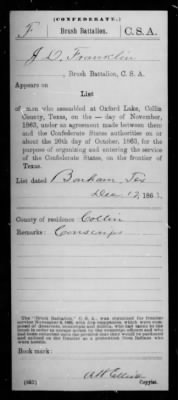 (CONFEDERATE.)
F Brush Battalion, C.S.A.
J. D. Franklin
, Brush Battalion, C. S. A.
Appears on
List
of men who assembled at Oxford Lake, Collin
County, Texas, on the — day of November,
1863, under an agreement made between them
and the Confederate States authorities on or
about the 20th day of October, 1863, for the
purpose of organizing and entering the service
of the Confederate States, on the frontier of
Texas.
List dated Bonham Tex
Dec 17, 186
County of residence Collin
Remarks: Conscript
The "Brush Battalion," C. S. A., was organized for frontier
service November 1863, with five companies, which were composed
of deserters, conscripts and others, who had taken to the
brush in order to
and
and retired on the frontier as a protection from Indians who
were hostile.
Book mark:
(982) Copyist.